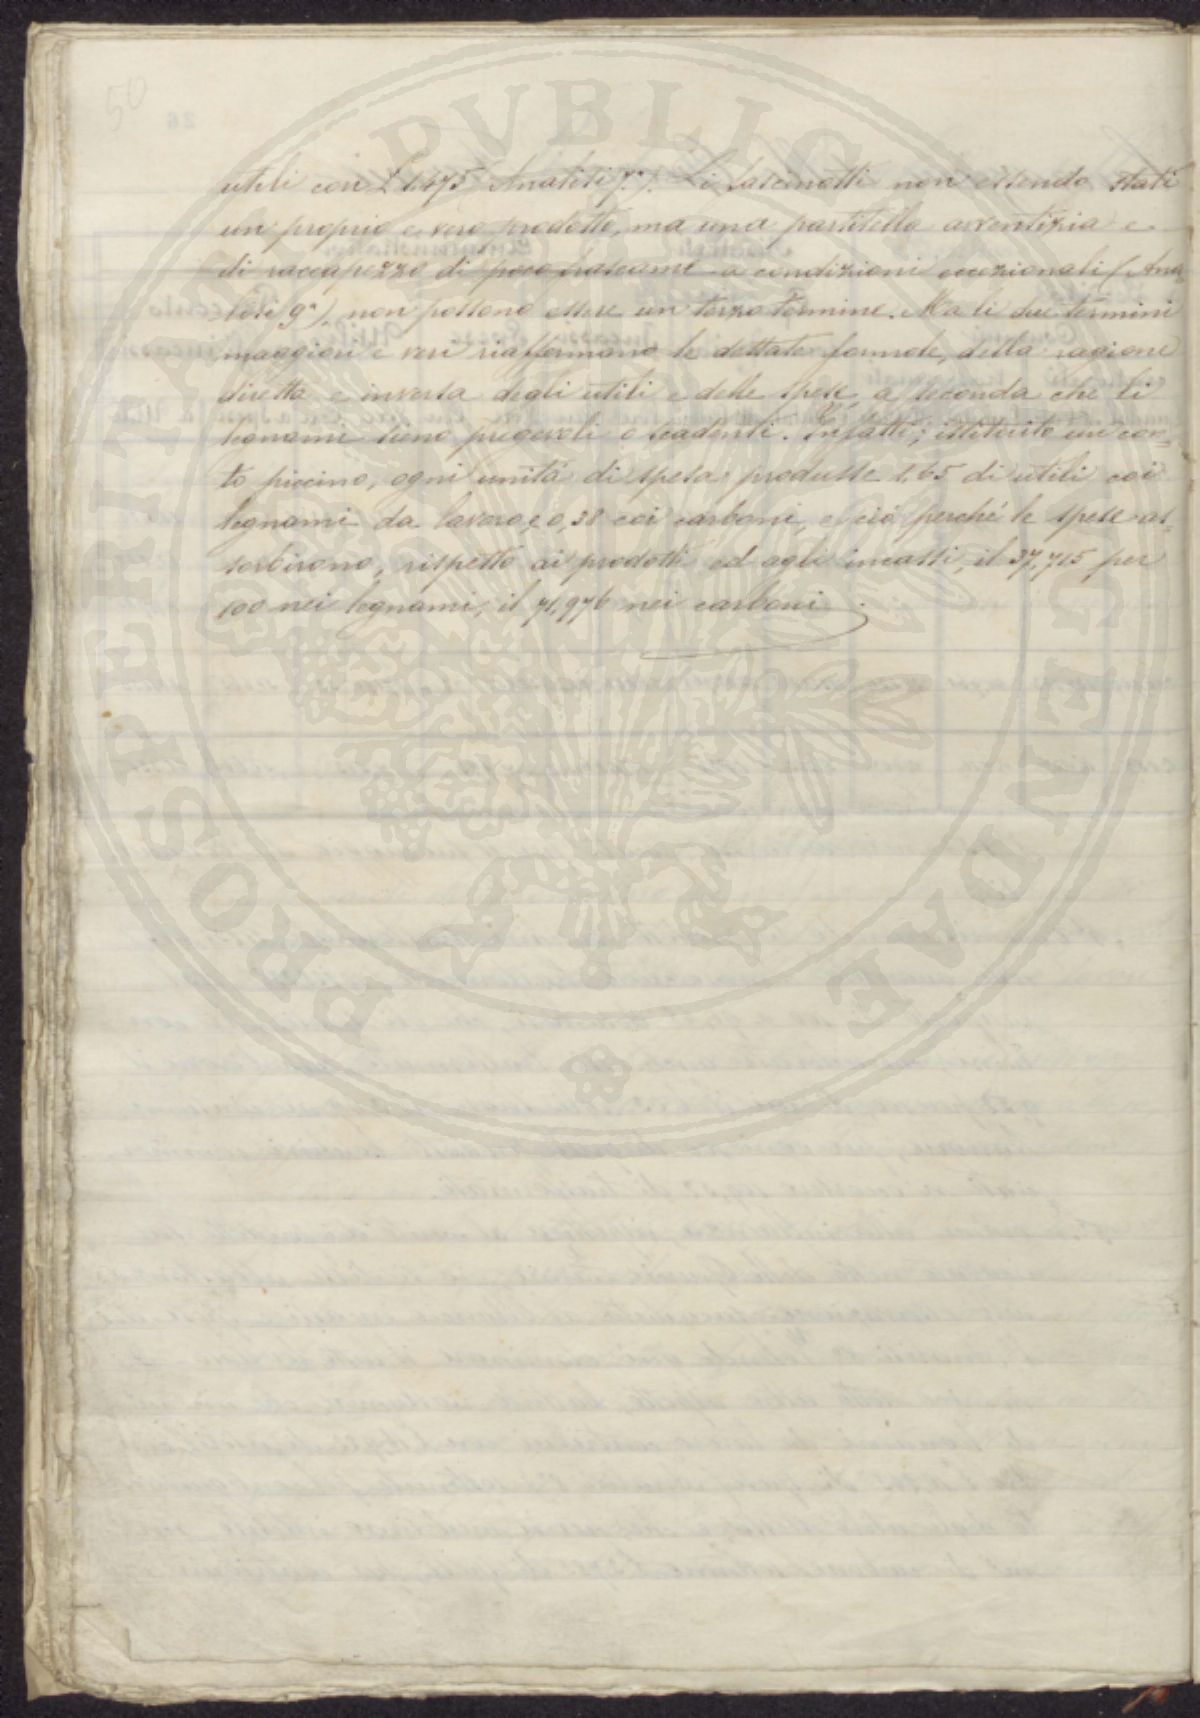 50
utili con L 1.475 Analisi 7ª). Li fascinotti non essendo stati
un proprio e vero prodotto, ma una partitella avventizia e
di raccapezzo di poco frascame a condizioni eccezionali (Ana-
lisi 9ª), non possono essere un terzo termine. Ma li due termini
maggiori e veri riaffermano le dettate formole, della ragione
diretta e inversa degli utili e delle spese, a seconda che li
legnami sieno pregevoli o scadenti. Infatti; istituito un con-
to piccino, ogni unità di spesa produsse 1,65 di utili coi
legnami da lavoro, e 0,38 coi carboni, e ciò perché le spese as-
sorbirono, rispetto ai prodotti ed agli incassi, il 37,715 per
100 nei legnami; il 71,976 nei carboni.
PROSPERITATI PVBLICAE AVGENDAE